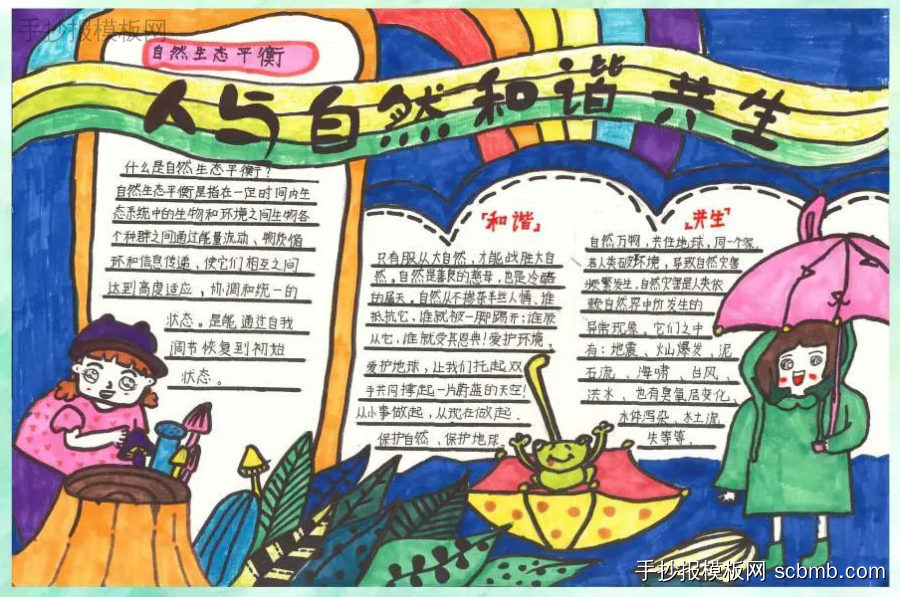 手抄报模板网
自然生态平衡
人与自然和谐共生
什么是自然生态平衡?
自然生态平衡是指在一定时间内生
态系统中的生物和环境之间生物各
个种群之间通过能量流动、物质循
环和信息传递，使它们相互之间
达到高度适应，协调和统一的
状态。是能通过自我
调节恢复到初始
状态。
「和谐」
只有服从大自然，才能战胜大自
然。自然是善良的慈母，也是冷酷
的屠夫。自然从不掺杂半丝人情。谁
抵抗它，谁就被一脚踢开；谁顺
从它，谁就受其恩典！爱护环境，
爱护地球，让我们托起双
手共同撑起一片蔚蓝的天空！
从小事做起，从现在做起.
保护自然、保护地球.
「共生」
自然万物，共住地球，同一个家.
若人类破坏环境，导致自然灾害
频繁发生，自然灾害是人类依
赖自然界中所发生的
异常现象，它们之中
有：地震、火山爆发、泥
石流、海啸、台风、
洪水、也有臭氧层变化、
水体污染、水土流
失等等.
手抄报模板网 scbmb.com